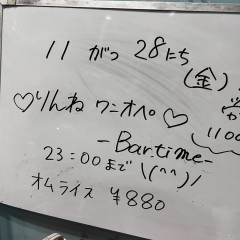 11 がつ 28にち
(金)
♡りんね ワンオペ♡
1100
-Bar.time-
23:00まで\(^^)/
オムライス ¥880